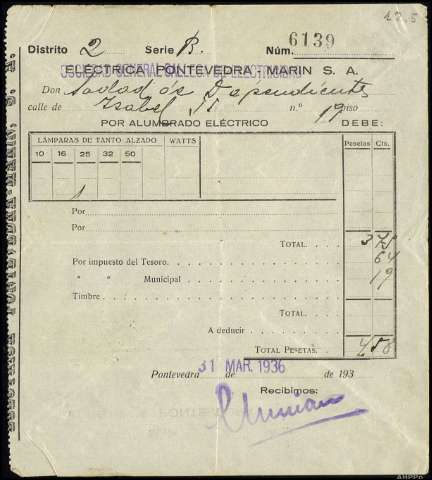 12.5
Distrito 2 Serie B. Núm. 6139
SOCIEDAD GENERAL GALLEGA DE ELECTRICIDAD
ELÉCTRICA PONTEVEDRA MARIN S. A.
Don Sociedad de Dependientes
calle de Isabel II n.º 19 piso
POR ALUMBRADO ELÉCTRICO DEBE:
LÁMPARAS DE TANTO ALZADO WATTS Pesetas Cts.
10 16 25 32 50
1
Por
Por
TOTAL. 3 75
Por impuesto del Tesoro. 64
" " Municipal 19
Timbre
TOTAL.
A deducir
TOTAL PESETAS. 4 58
Pontevedra 31 MAR. 1936 de de 193
Recibimos:
AHPPo